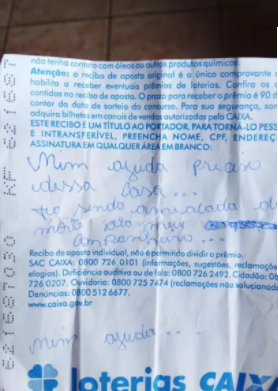 não tenha contato com óleos ou outros produtos químicos.
Atenção: o recibo de aposta original é o único comprovante
habilita a receber eventuais prêmios de loterias. Confira os
contidos no recibo de aposta. O prazo para receber o prêmio é 90 d
contar da data do sorteio do concurso. Para sua segurança, som
adquira bilhetes em canais de vendas autorizadas pela CAIXA.
ESTE RECIBO É UM TÍTULO AO PORTADOR. PARA TORNÁ-LO PESS
E INTRANSFERÍVEL, PREENCHA NOME, CPF, ENDEREÇO
ASSINATURA EM QUALQUER ÁREA EM BRANCO:
Mim ajuda preciso
dessa casa...
tô sendo ameaçada de
morte pelo meu
companheiro...
Recibo de aposta individual, não é permitido dividir o prêmio.
SAC CAIXA: 0800 726 0101 (informações, sugestões, reclamaçõe
elogios). Deficiência auditiva ou de fala: 0800 726 2492. Cidadão: 08
726 0207. Ouvidoria: 0800 725 7474 (reclamações não solucionada
Denúncias: 0800 512 6677.
www.caixa.gov.br
mim ajuda...
loterias CAIX